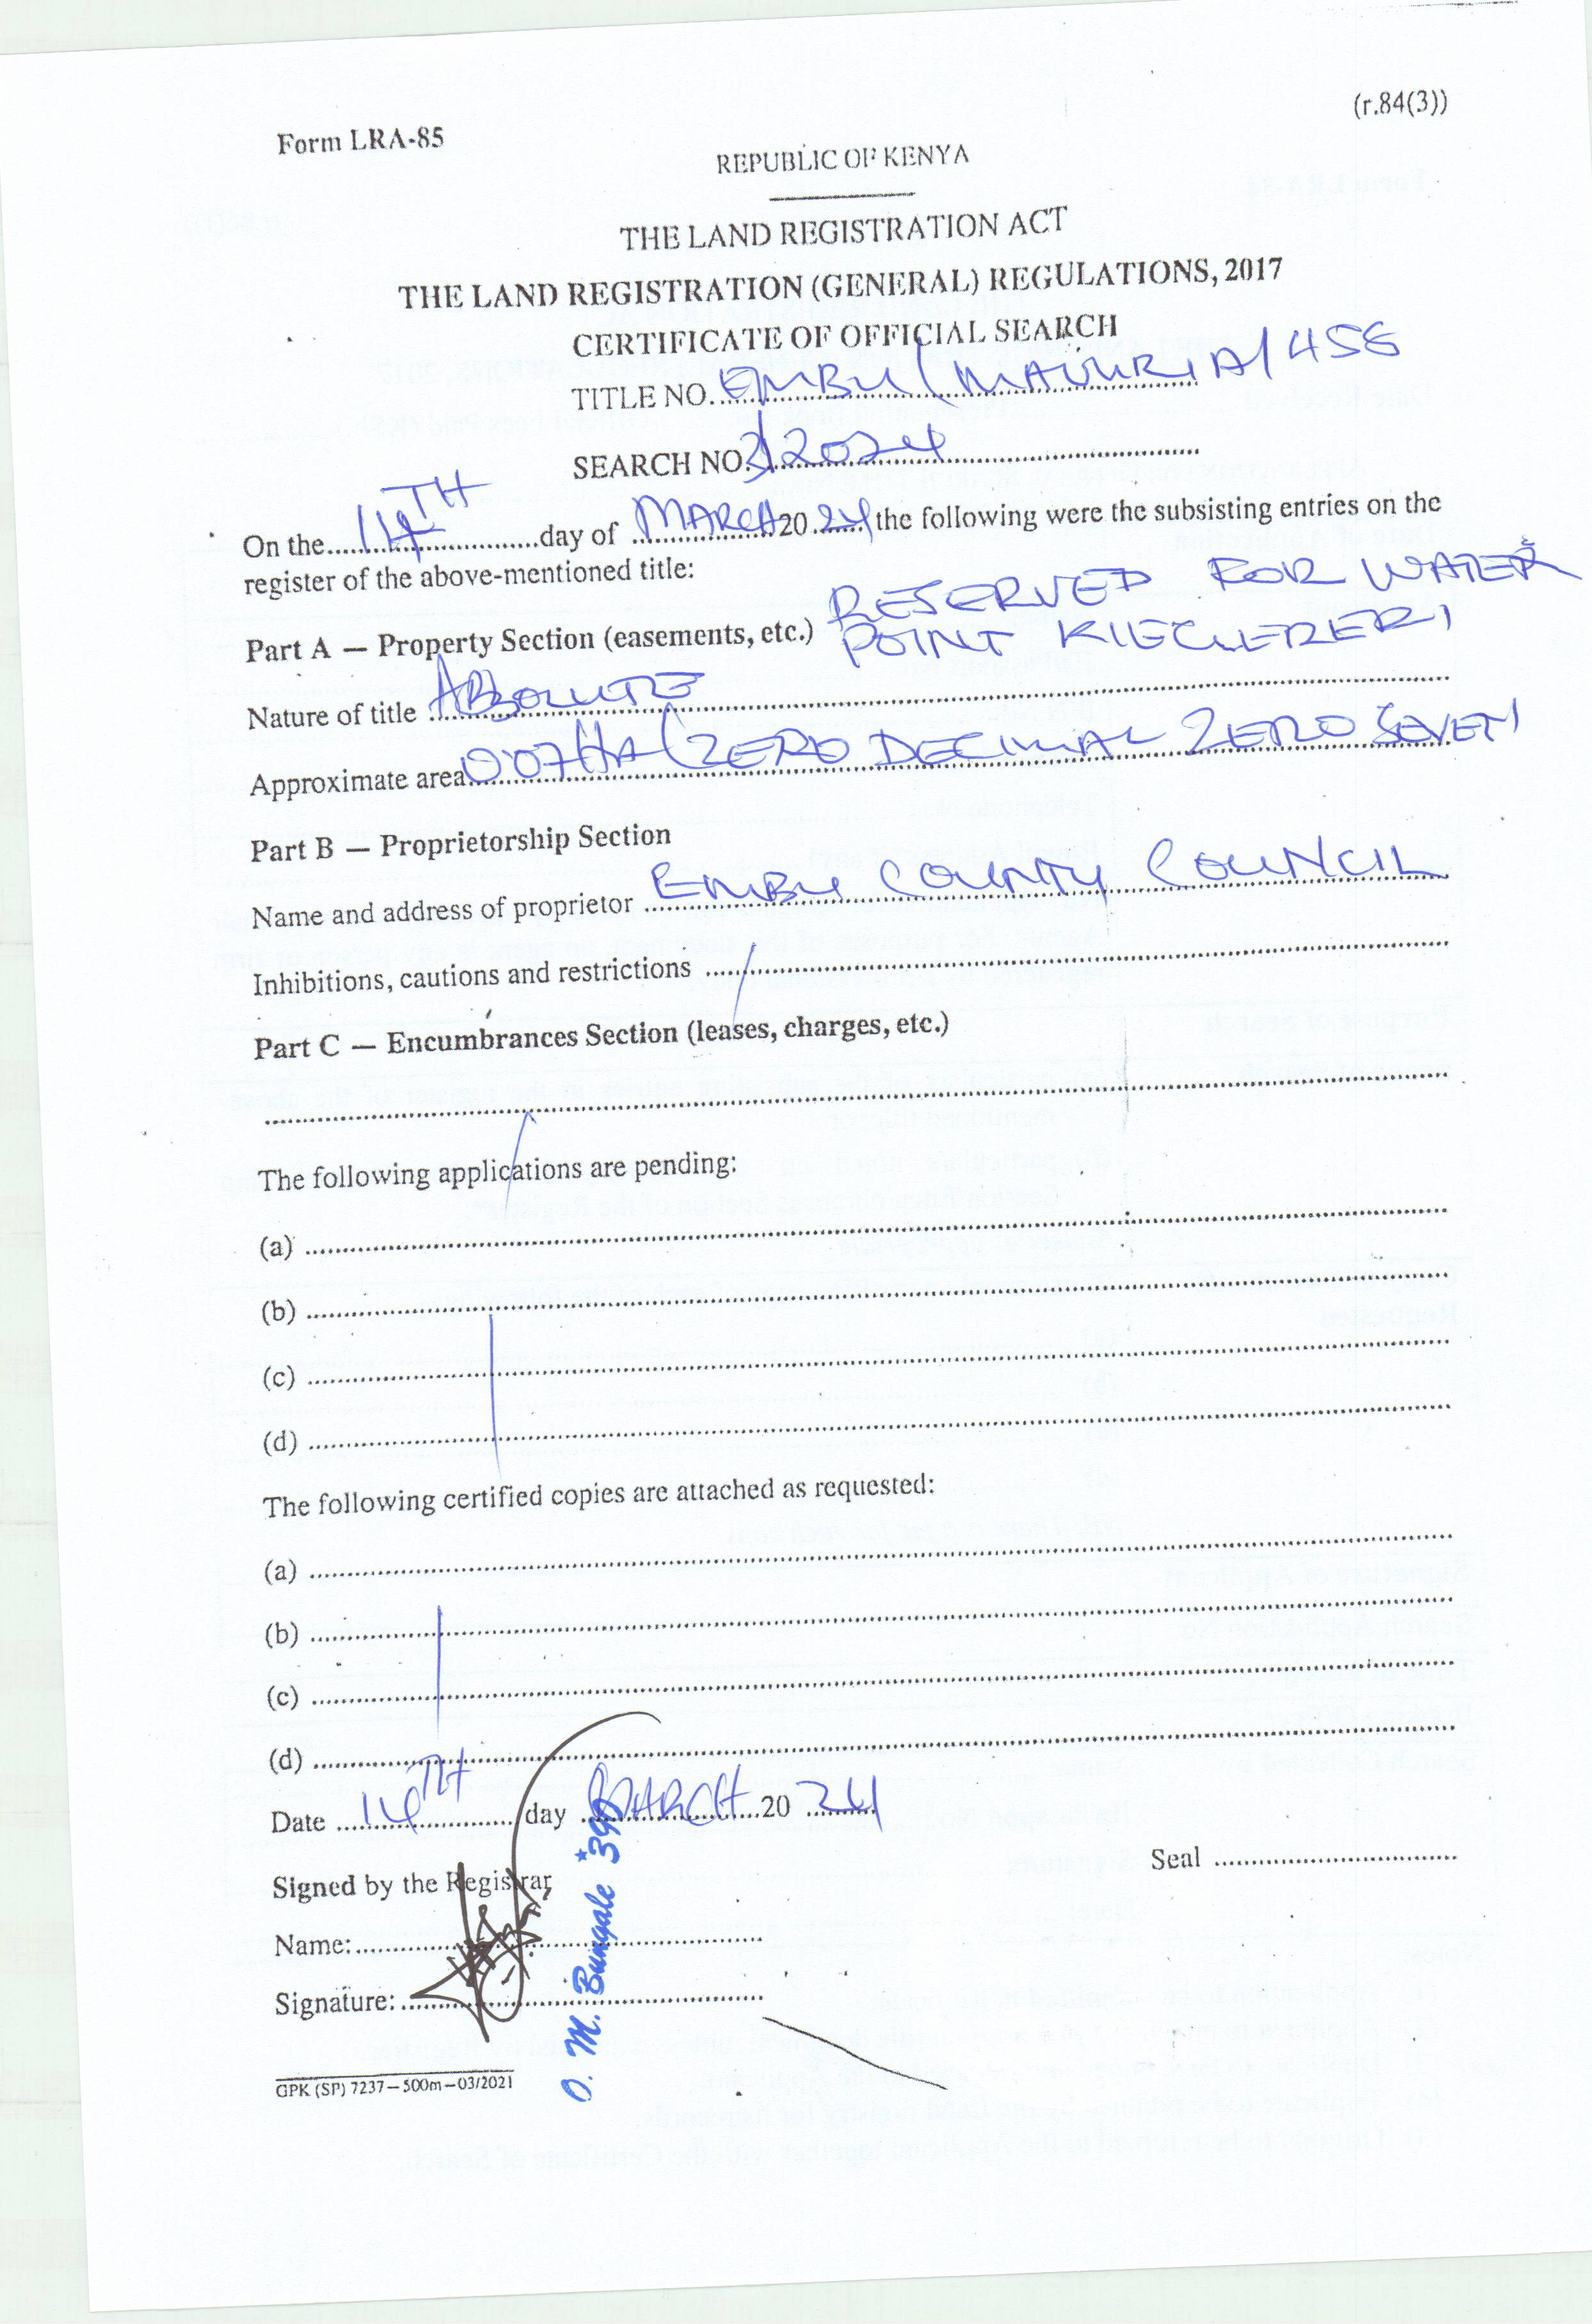 (r.84(3))
Form LRA-85
REPUBLIC OF KENYA
THE LAND REGISTRATION ACT
THE LAND REGISTRATION (GENERAL) REGULATIONS, 2017
CERTIFICATE OF OFFICIAL SEARCH
TITLE NO. EMBU/MAVURIA/456
SEARCH NO. 3/2024
On the 14TH day of MARCH 20 24 the following were the subsisting entries on the
register of the above-mentioned title:
Part A — Property Section (easements, etc.) RESERVED FOR WATER
POINT
Nature of title ABSOLUTE
Approximate area 0.07HA (ZERO DECIMAL ZERO SEVEN)
Part B — Proprietorship Section
Name and address of proprietor EMBU COUNTY COUNCIL
Inhibitions, cautions and restrictions
Part C — Encumbrances Section (leases, charges, etc.)
The following applications are pending:
(a)
(b)
(c)
(d)
The following certified copies are attached as requested:
(a)
(b)
(c)
(d)
Date 14TH day MARCH 20 24
Seal
Signed by the Registrar
Name:
Signature:
O. M. Bungale *390
GPK (SP) 7237—500m—03/2021